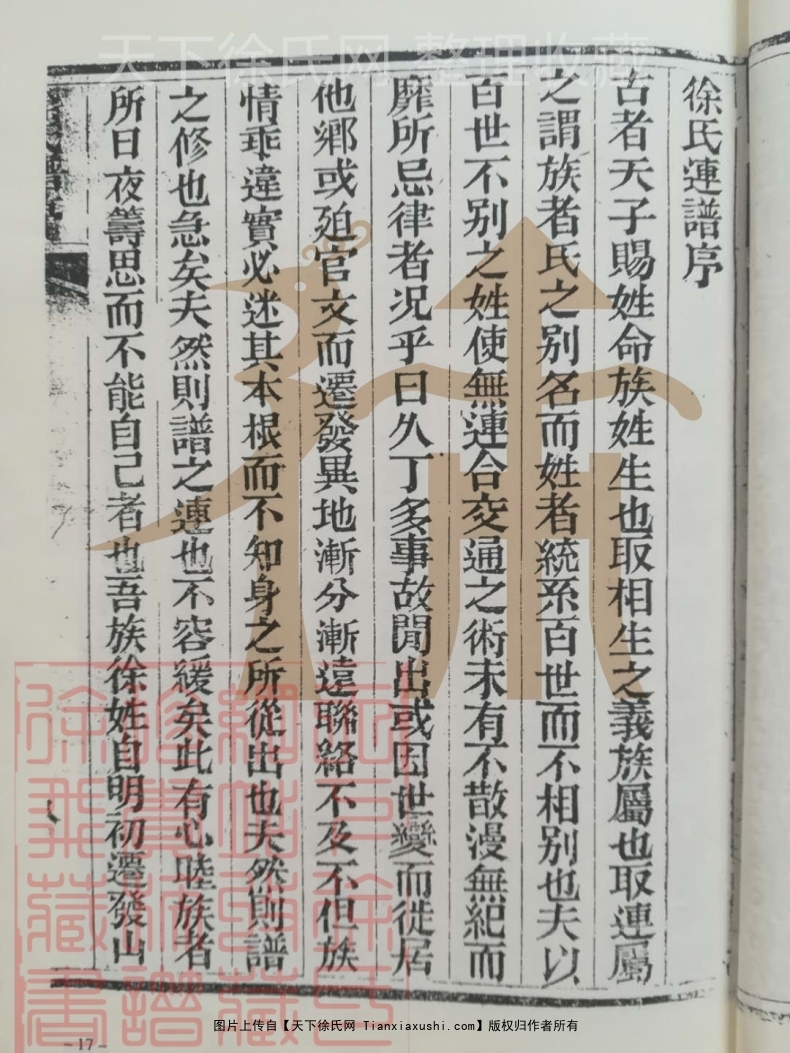 天下徐氏网 整理收藏
徐氏連譜序
古者天子賜姓命族姓生也取相生之義族屬也取連屬
之謂族者氏之别名而姓者統系百世而不相别也夫以
百世不别之姓使無連合交通之術未有不散漫無紀而
靡所忌律者况乎日久丁多事故閒出或因世變而徙居
他鄉或廹官文而遷發異地漸分漸遠聯絡不及不但族
情乖違實必迷其本根而不知身之所從出也夫然則譜
之修也急矣夫然則譜之連也不容緩矣此有心睦族者
所日夜籌思而不能自己者也吾族徐姓自明初遷發山
-17-
图片上传自【天下徐氏网 Tianxiaxushi.com】版权归作者所有